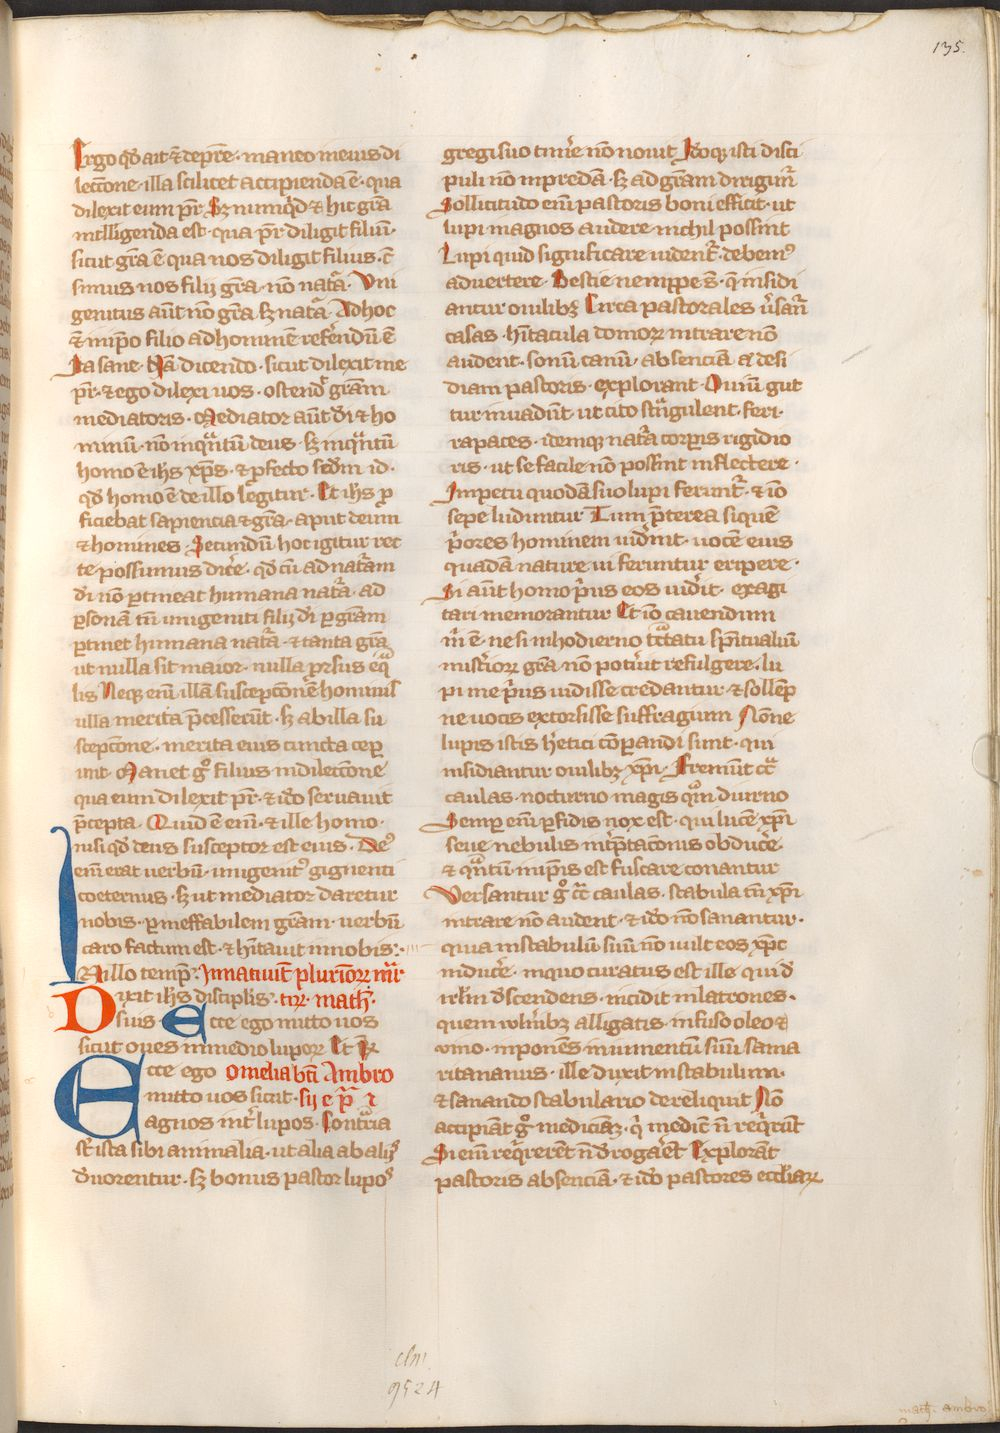 135.
Ergo qd̄ ait ⁊ de pr̄e · maneo in eius di
lectione · illa scilicet accipienda ē · qua
dilexit eum pr̄ Sꝫ nūquid ⁊ hic grā
intelligenda est · qua pr̄ diligit filiū ·
sicut grā ē qua nos diligit filius · c̄
simus nos filii grā · non nat̄a · Vni
genitus aūt nō grā sꝫ nat̄a · Adhoc
⁊ in ip̄o filio ad hominē referendū ē
Ita sane · Nā dicendo · sicut dilexit me
pr̄ · ⁊ ego dilexi uos · ostendit grām
mediatoris · Mediator aūt dī ⁊ ho
minū · nō inq̄ntū deus · sꝫ inq̄ntū
homo ē ih̄s xp̄s · ⁊ ꝓfecto scd̄m id ·
qd̄ homo ē de illo legitur · Et ih̄s ꝓ
ficiebat sapiencia ⁊ grā · aput deum
⁊ homines Secundū hoc igitur rec
te possumus dic̄e · qd̄ cū ad nat̄am
dī nō ꝑtineat humana nat̄a · ad
ꝑsonā tn̄ unigeniti filii dī ꝑ grām
ꝑtinet humana nat̄a · ⁊ tanta grā
ut nulla sit maior · nulla ꝓrsus eq̄
lis Neqꝫ enī illā susceptionē hominis
ulla merita p̄cesserūt · sꝫ ab illa su
sceptione · merita eius cuncta cep̄
unt · Manet gͦ filius in dilectione
qua eum dilexit pr̄ · ⁊ ido seruauit
p̄cepta · Quid ē enī · ⁊ ille homo ·
nisi qd̄ deus susceptor est eius · Deꝰ
enī erat uerbū · unigenitꝰ gignenti
coeternus · sꝫ ut mediator daretur
nobis · ꝑ ineffabilem grām · uerbū
caro factum est · ⁊ hītauit in nobis ·
In illo temp̄ · In natiuit̄ pluriorꝝ mr̄
Dixit ih̄s disciplis · rꝝ · math̄ ·
suis · Ecce ego mitto uos
sicut oues in medio luporꝝ Et r̄
Ecce ego Omelia bt̄i Ambro
mitto uos sicut · sij ep̄i
agnos int̄ lupos · Cont̄ria
st̄ ista sibi animalia · ut alia ab alijs
deuorentur · sꝫ bonus pastor lupos
gregi suo timere nō nouit Idoqꝫ isti disci
puli nō in predā · sꝫ ad grām dirigunt̄
Sollicitudo enī pastoris boni efficit · ut
lupi in agnos audere nichil possint
Lupi quid significare uident̄ · debemꝰ
aduertere · Bestie nempe st̄ · q̄ insidi
antur ouilibꝫ Circa pastorales u̓sant̄
casas · hītacula domorꝝ intrare nō
audent · sonū canū · absenciā a desi
diam pastoris · explorant · Ouiū gut
tur inuadūt · ut cito st̄ngulent · feri ·
rapaces · idemqꝫ nat̄a corꝑis rigidio
ris · ut se facile nō possint inflectere ·
Impetu quodā suo lupi ferunt̄ · ⁊ iō
sepe luduntur Tum p̄terea siquē
p̄ores hominem uid̓int · uocē eius
quadā nature ui feruntur eripere ·
Si aūt homo p̄us eos uid̓it · exagi
tari memorantur Et iō cauendum
m̄ ē · ne si in hodierno t̄ctatu sp̄itualiū
mist̓iorꝝ grā nō potu̓it refulgere · lu
pi me p̄us uidisse credantur · ⁊ sollēp
ne uocis extorsisse suffragium Nōne
lupis istis h̓etici cōparandi sunt · qui
insidiantur ouilibꝫ xp̄i · Fremūt cc̄
caulas · nocturno magis qm̄ diurno
Semꝑ enī ꝑfidis nox est · qui lucē xp̄i
seue nebulis int̓p̄tacōnis obduc̓e ·
⁊ q̄ntū in ip̄is est fuscare conantur
Versantur gͦ cc̄ caulas · stabula tn̄ xp̄i
intrare nō audent · ⁊ ido nō sanantur ·
quia in stabulū suū nō uult eos xp̄c
induc̓e · in quo curatus est ille qui d̓
irl̄m d̓scendens · incidit in latrones ·
quem uuln̓ibꝫ alligatis · infuso oleo ⁊
uino · inponēs in iumentū suū sama
ritananus · ille duxit in stabulum ·
⁊ sanando stabulario dereliquit Nō
accipiāt gͦ medicinā · q̄ medicū n̄ req̄rūt
Si enī req̄rerēt n̄ d̓rogarēt Explorāt
pastoris absenciā · ⁊ ido pastores eccliarꝝ
clm
9524
math. ambro